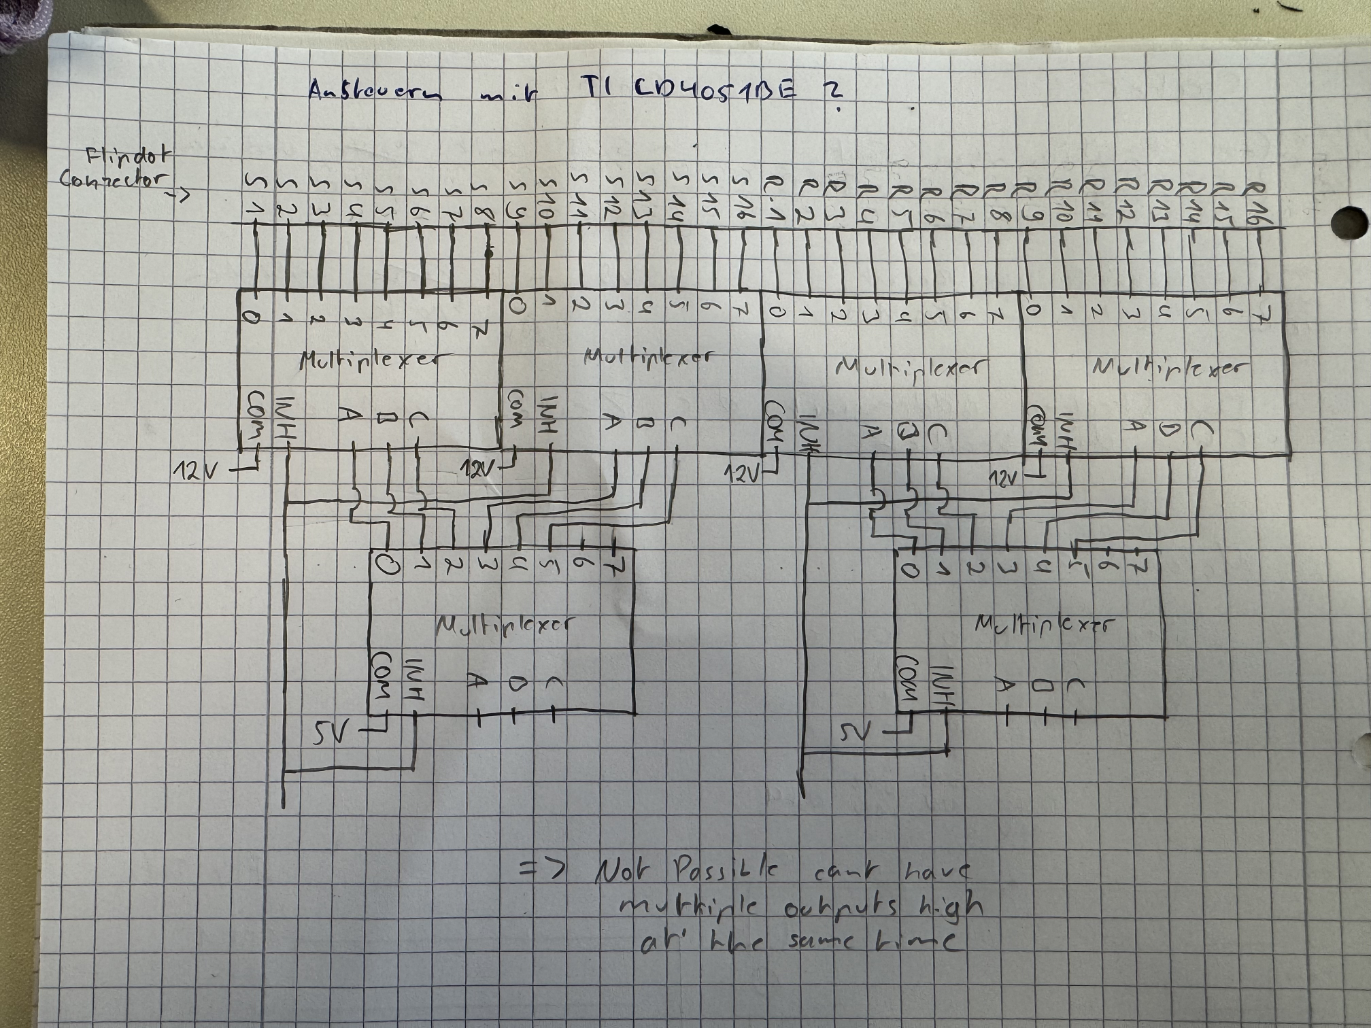 Ansteuern mit TI CD4051BE ?
Flipdot
Connector ->
S1 S2 S3 S4 S5 S6 S7 S8 S9 S10 S11 S12 S13 S14 S15 S16 R1 R2 R3 R4 R5 R6 R7 R8 R9 R10 R11 R12 R13 R14 R15 R16
0 1 2 3 4 5 6 7 0 1 2 3 4 5 6 7 0 1 2 3 4 5 6 7 0 1 2 3 4 5 6 7
Multiplexer Multiplexer Multiplexer Multiplexer
COM INH A B C COM INH A B C COM INH A B C COM INH A B C
12V 12V 12V 12V
0 1 2 3 4 5 6 7 0 1 2 3 4 5 6 7
Multiplexer Multiplexer
COM INH A B C COM INH A B C
5V 5V
=> Not Possible cant have
multiple outputs high
at the same time